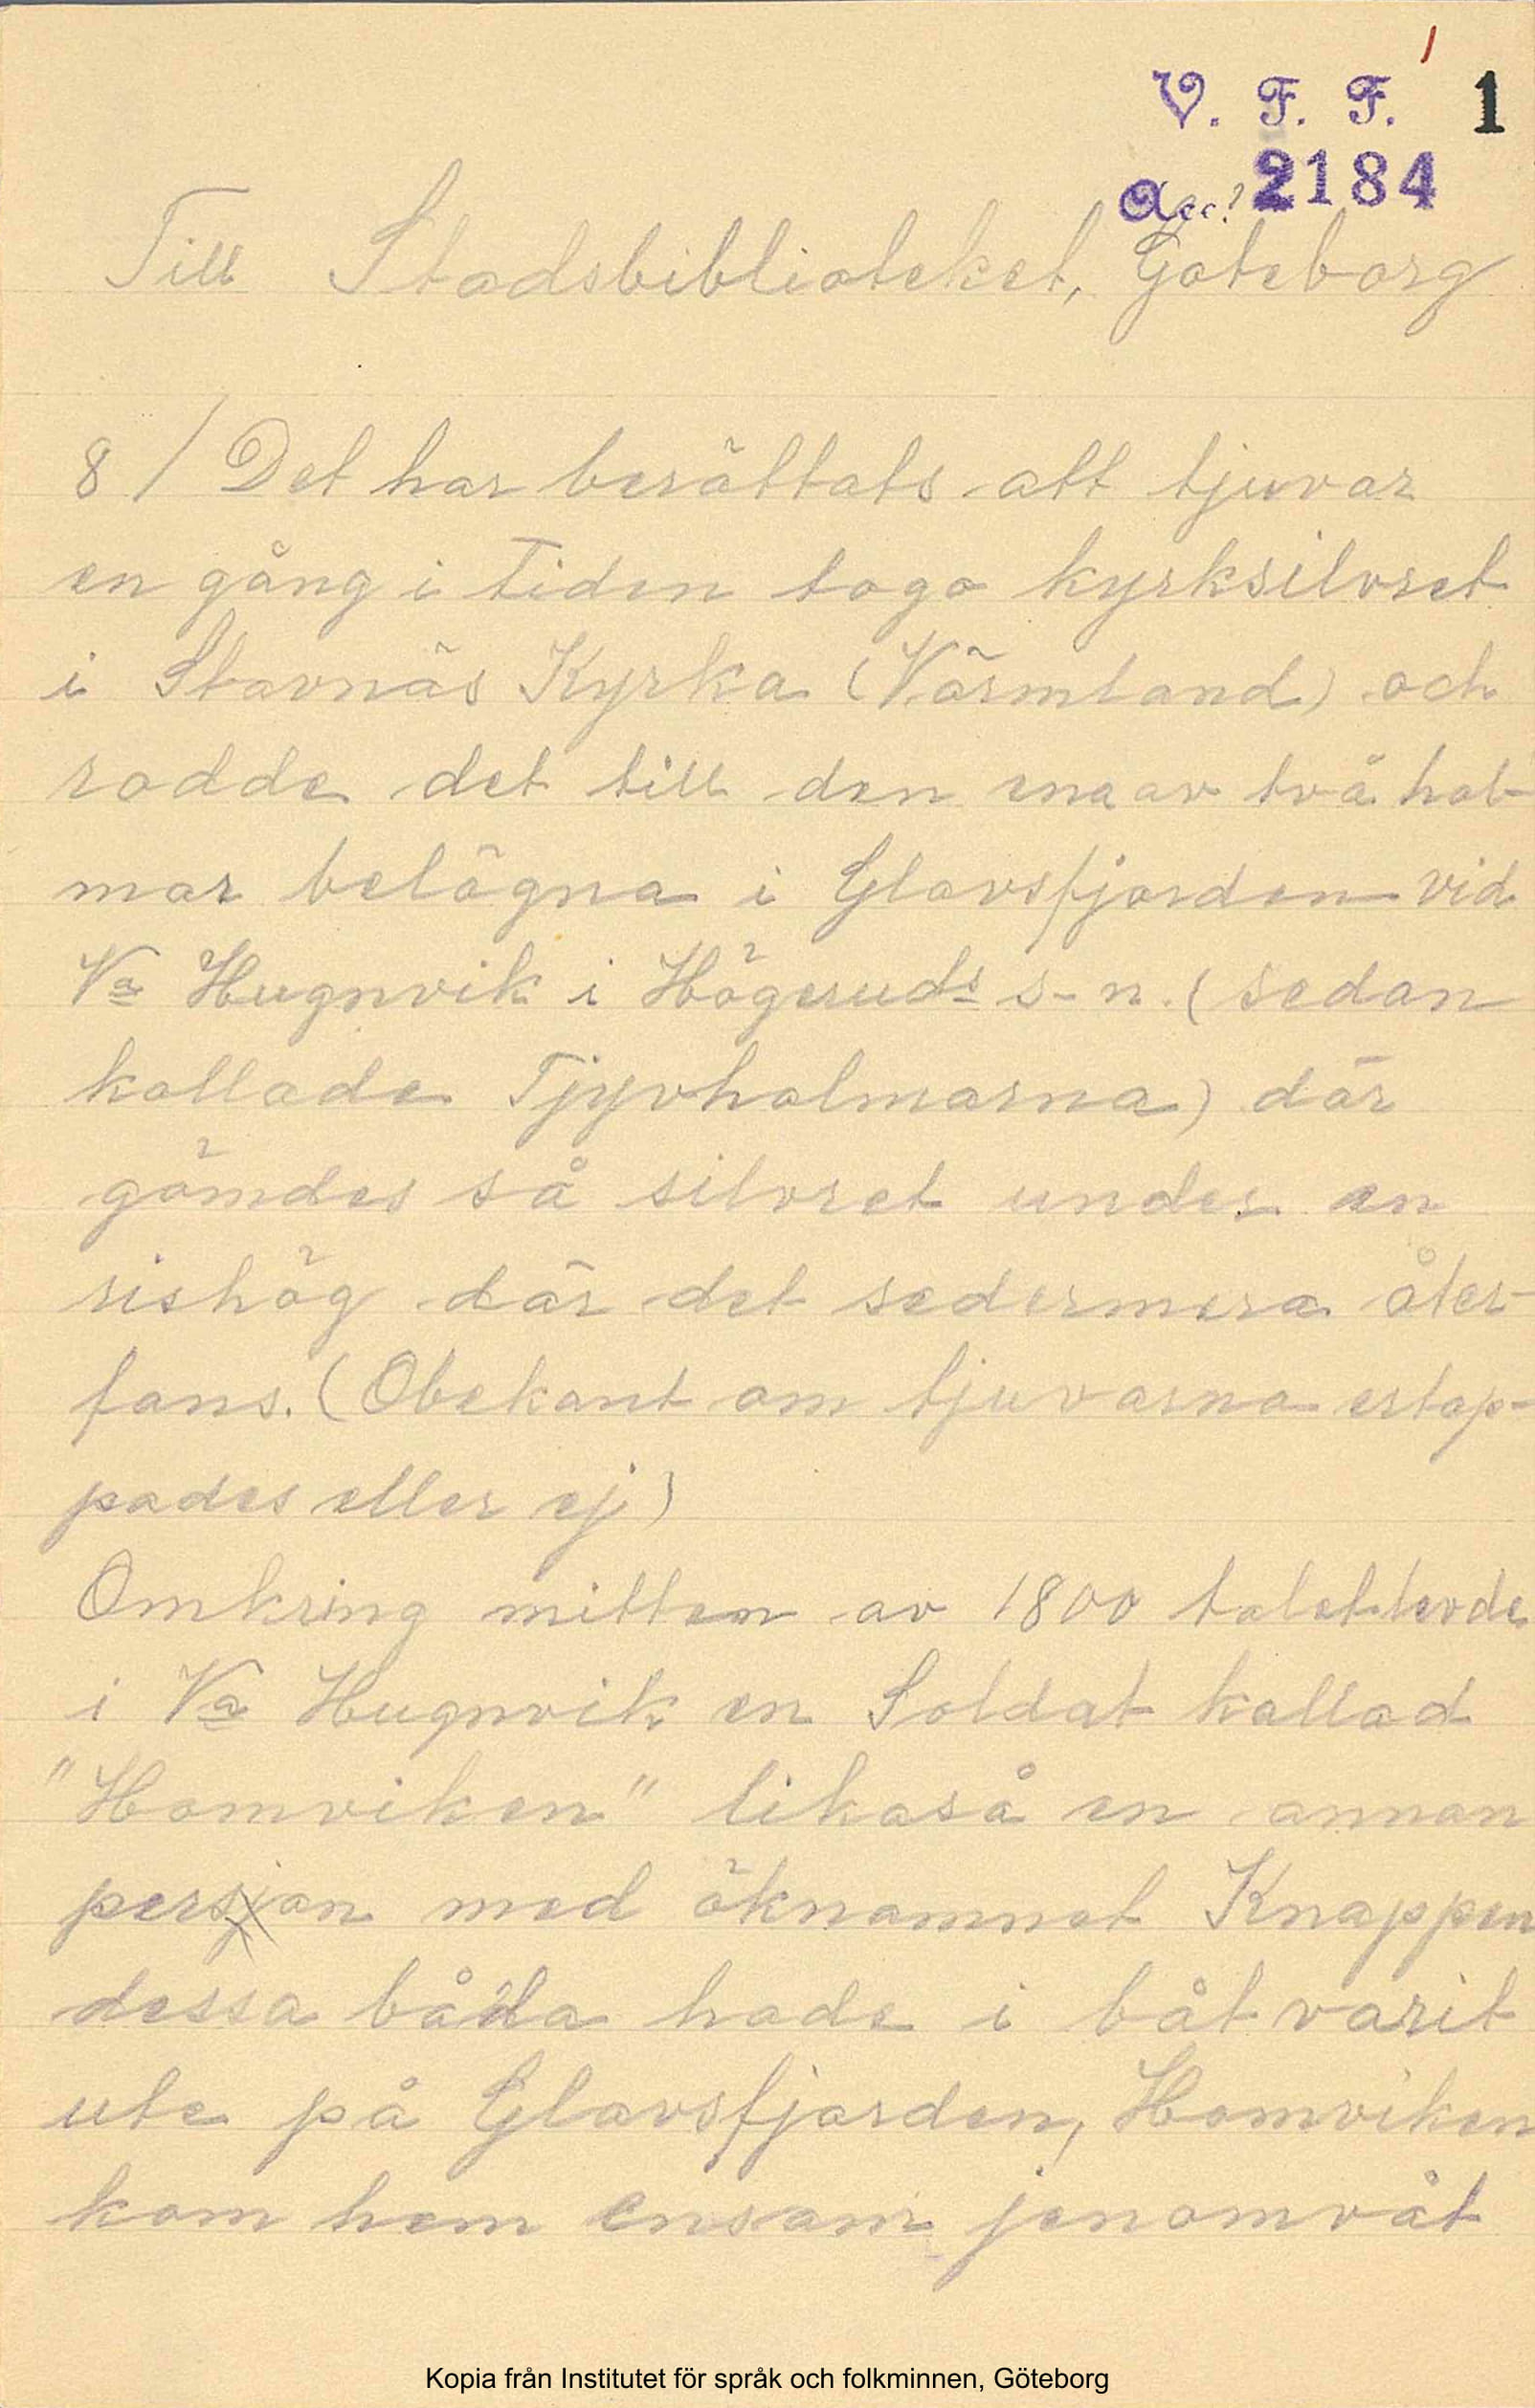 1
V. F. F. 1
Acc. 2184
Till Stadsbiblioteket, Göteborg
8/ Det har berättats att tjuvar
en gång i tiden togo kyrksilvret
i Stavnäs Kyrka (Värmland) och
rodde det till den ena av två hol-
mar belägna i Glavsfjorden vid
Va Hugnvik i Högeruds s-n. (sedan
kallade Tjyvholmarna) där
gömdes så silvret under en
rishög där det sedermera åter-
fans. (Obekant om tjuvarna ertap-
pades eller ej)
Omkring mitten av 1800 talet levde
i Va Hugnvik en Soldat kallad
"Homviken" likaså en annan
person med öknamnet Knappen
dessa båda hade i båt varit
ute på Glavsfjorden, Homviken
kom hem ensam jenomvåt
Kopia från Institutet för språk och folkminnen, Göteborg